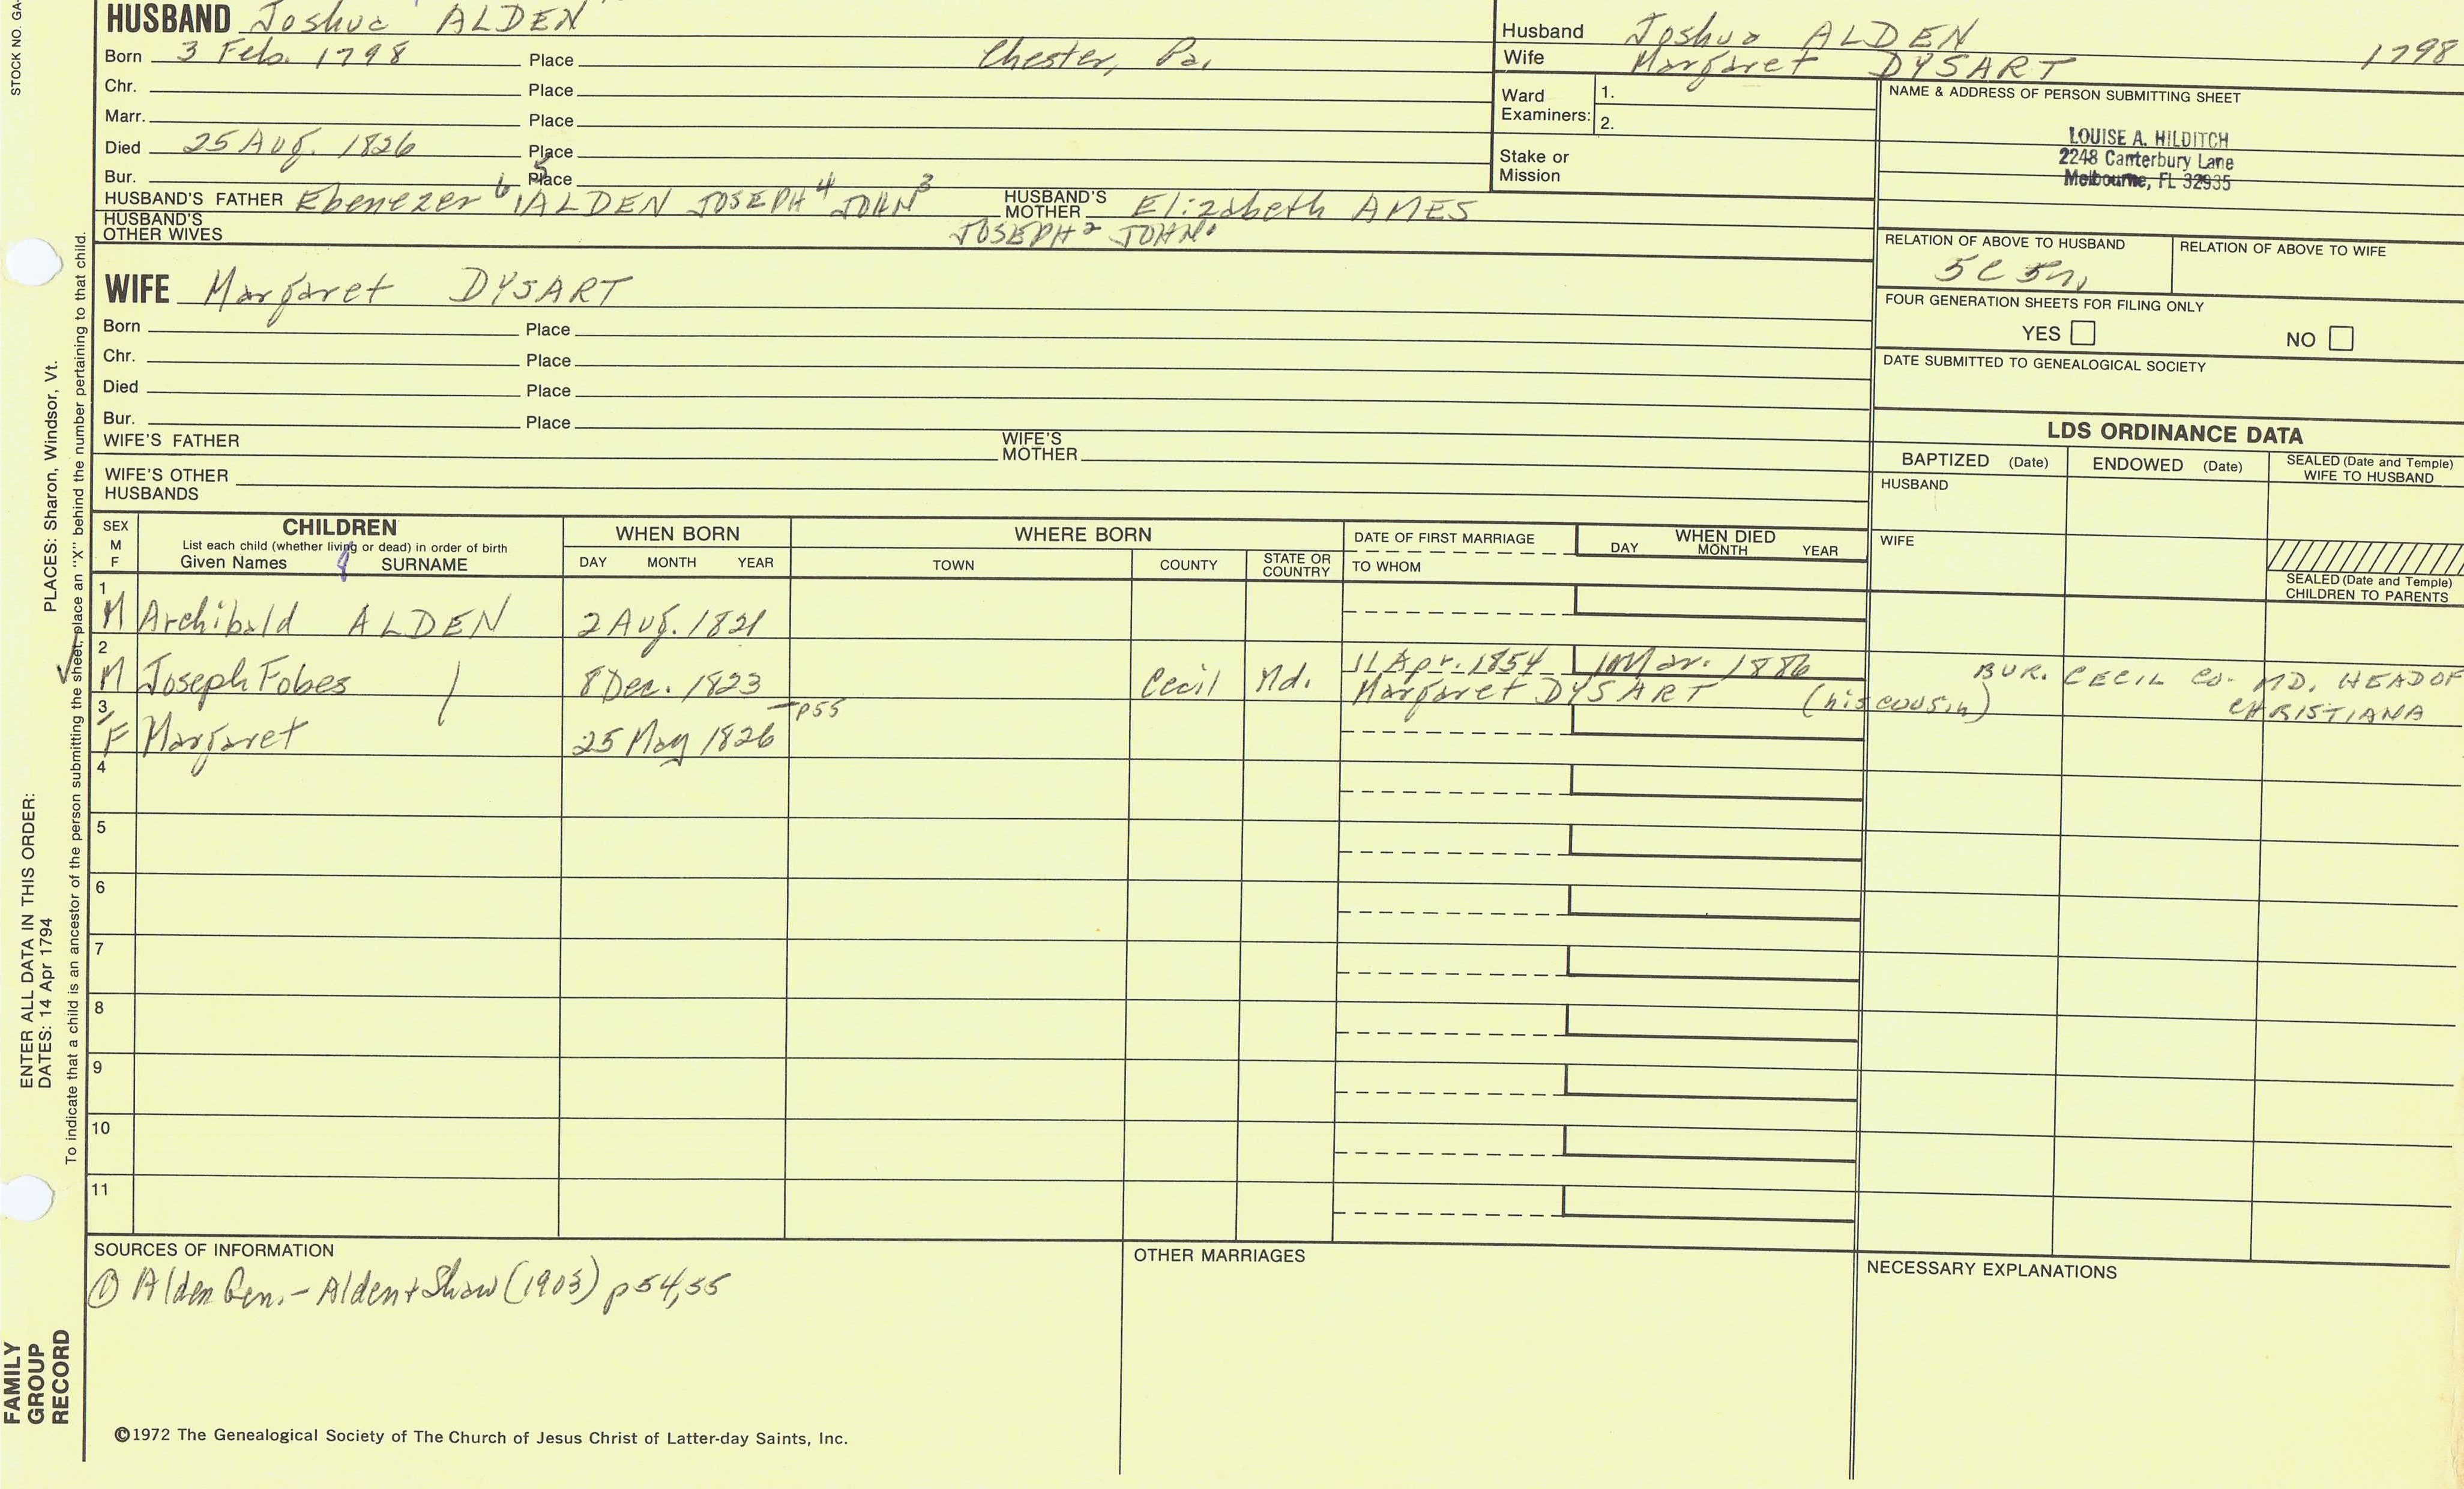 STOCK NO. GA-
HUSBAND Joshua ALDEN
Born 3 Feb. 1798 Place Chester, Pa.
Chr. Place
Marr. Place
Died 25 Aug. 1826 Place
Bur. Place
HUSBAND'S FATHER Ebenezer 6 ALDEN 5 JOSEPH 4 JOHN 3 HUSBAND'S MOTHER Elizabeth AMES
HUSBAND'S OTHER WIVES JOSEPH 2 JOHN 1
Husband Joshua ALDEN 1798
Wife Margaret DYSART
Ward Examiners: 1.
2.
Stake or Mission
NAME & ADDRESS OF PERSON SUBMITTING SHEET
LOUISE A. HILDITCH
2248 Canterbury Lane
Melbourne, FL 32935
RELATION OF ABOVE TO HUSBAND RELATION OF ABOVE TO WIFE
FOUR GENERATION SHEETS FOR FILING ONLY
YES NO
DATE SUBMITTED TO GENEALOGICAL SOCIETY
WIFE Margaret DYSART
Born Place
Chr. Place
Died Place
Bur. Place
WIFE'S FATHER WIFE'S MOTHER
WIFE'S OTHER HUSBANDS
LDS ORDINANCE DATA
BAPTIZED (Date) ENDOWED (Date) SEALED (Date and Temple) WIFE TO HUSBAND
HUSBAND
WIFE
SEALED (Date and Temple) CHILDREN TO PARENTS
SEX M F
CHILDREN
List each child (whether living or dead) in order of birth
Given Names SURNAME
WHEN BORN
DAY MONTH YEAR
WHERE BORN
TOWN COUNTY STATE OR COUNTRY
DATE OF FIRST MARRIAGE
TO WHOM
WHEN DIED
DAY MONTH YEAR
1 M Archibald ALDEN 2 Aug. 1821
2 M Joseph Fobes 8 Dec. 1823 Cecil Md. 11 Apr. 1854 1 Mar. 1886 BUR. CECIL CO. MD. HEAD OF
p55 Margaret DYSART (his cousin) CHRISTIANA
3 F Margaret 25 May 1826
4
5
6
7
8
9
10
11
SOURCES OF INFORMATION
① Alden Gen. - Alden + Shaw (1903) p 54,55
OTHER MARRIAGES
NECESSARY EXPLANATIONS
©1972 The Genealogical Society of The Church of Jesus Christ of Latter-day Saints, Inc.
FAMILY
GROUP
RECORD
ENTER ALL DATA IN THIS ORDER:
DATES: 14 Apr 1794
PLACES: Sharon, Windsor, Vt.
To indicate that a child is an ancestor of the person submitting the sheet, place an "X" behind the number pertaining to that child.